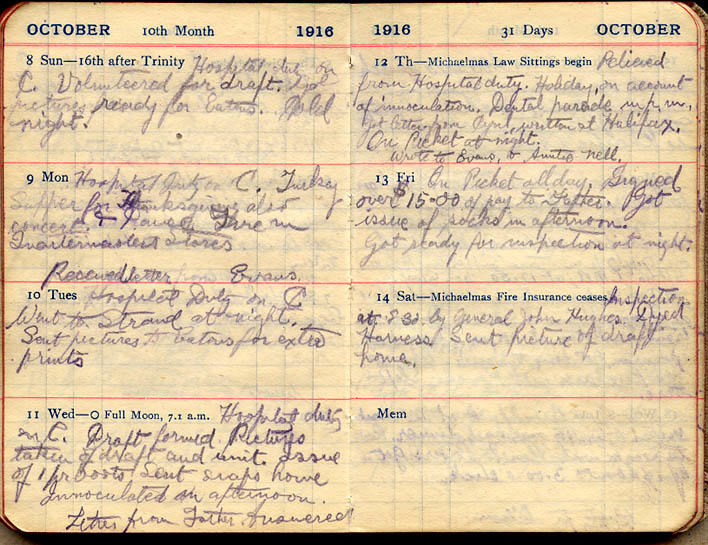 OCTOBER 10th Month 1916
8 Sun—16th after Trinity Hospital duty on
C. Volunteered for draft. Got
pictures ready for Eatons. Cold
night.
9 Mon Hospital Duty on C. Turkey
Supper for Thanksgiving also
concert. Fire in
Quartermasters Stores
Received letter from Evans.
10 Tues Hospital Duty on C
Went to Strand at night.
Sent pictures to Eatons for extra
prints
11 Wed—O Full Moon, 7.1 a.m. Hospital duty
on C. Draft formed. Pictures
taken of draft and unit. issue
of 1 pr boots Sent snaps home
Innoculated in afternoon.
Letter from Father. Answered
1916 31 Days OCTOBER
12 Th—Michaelmas Law Sittings begin Relieved
from Hospital duty. Holiday, on account
of innoculation. Dental parade in p.m.
Got letter from written at Halifax.
On Picket at night.
Wrote to Evans, to Auntie Nell.
13 Fri On Picket all day, Signed
over $15-00 of pay to Father. Got
issue of socks in afternoon.
Got ready for inspection at night.
14 Sat—Michaelmas Fire Insurance ceases Inspection
at 8 30 by General John Hughes.
Harness Sent picture of draft
home.
Mem